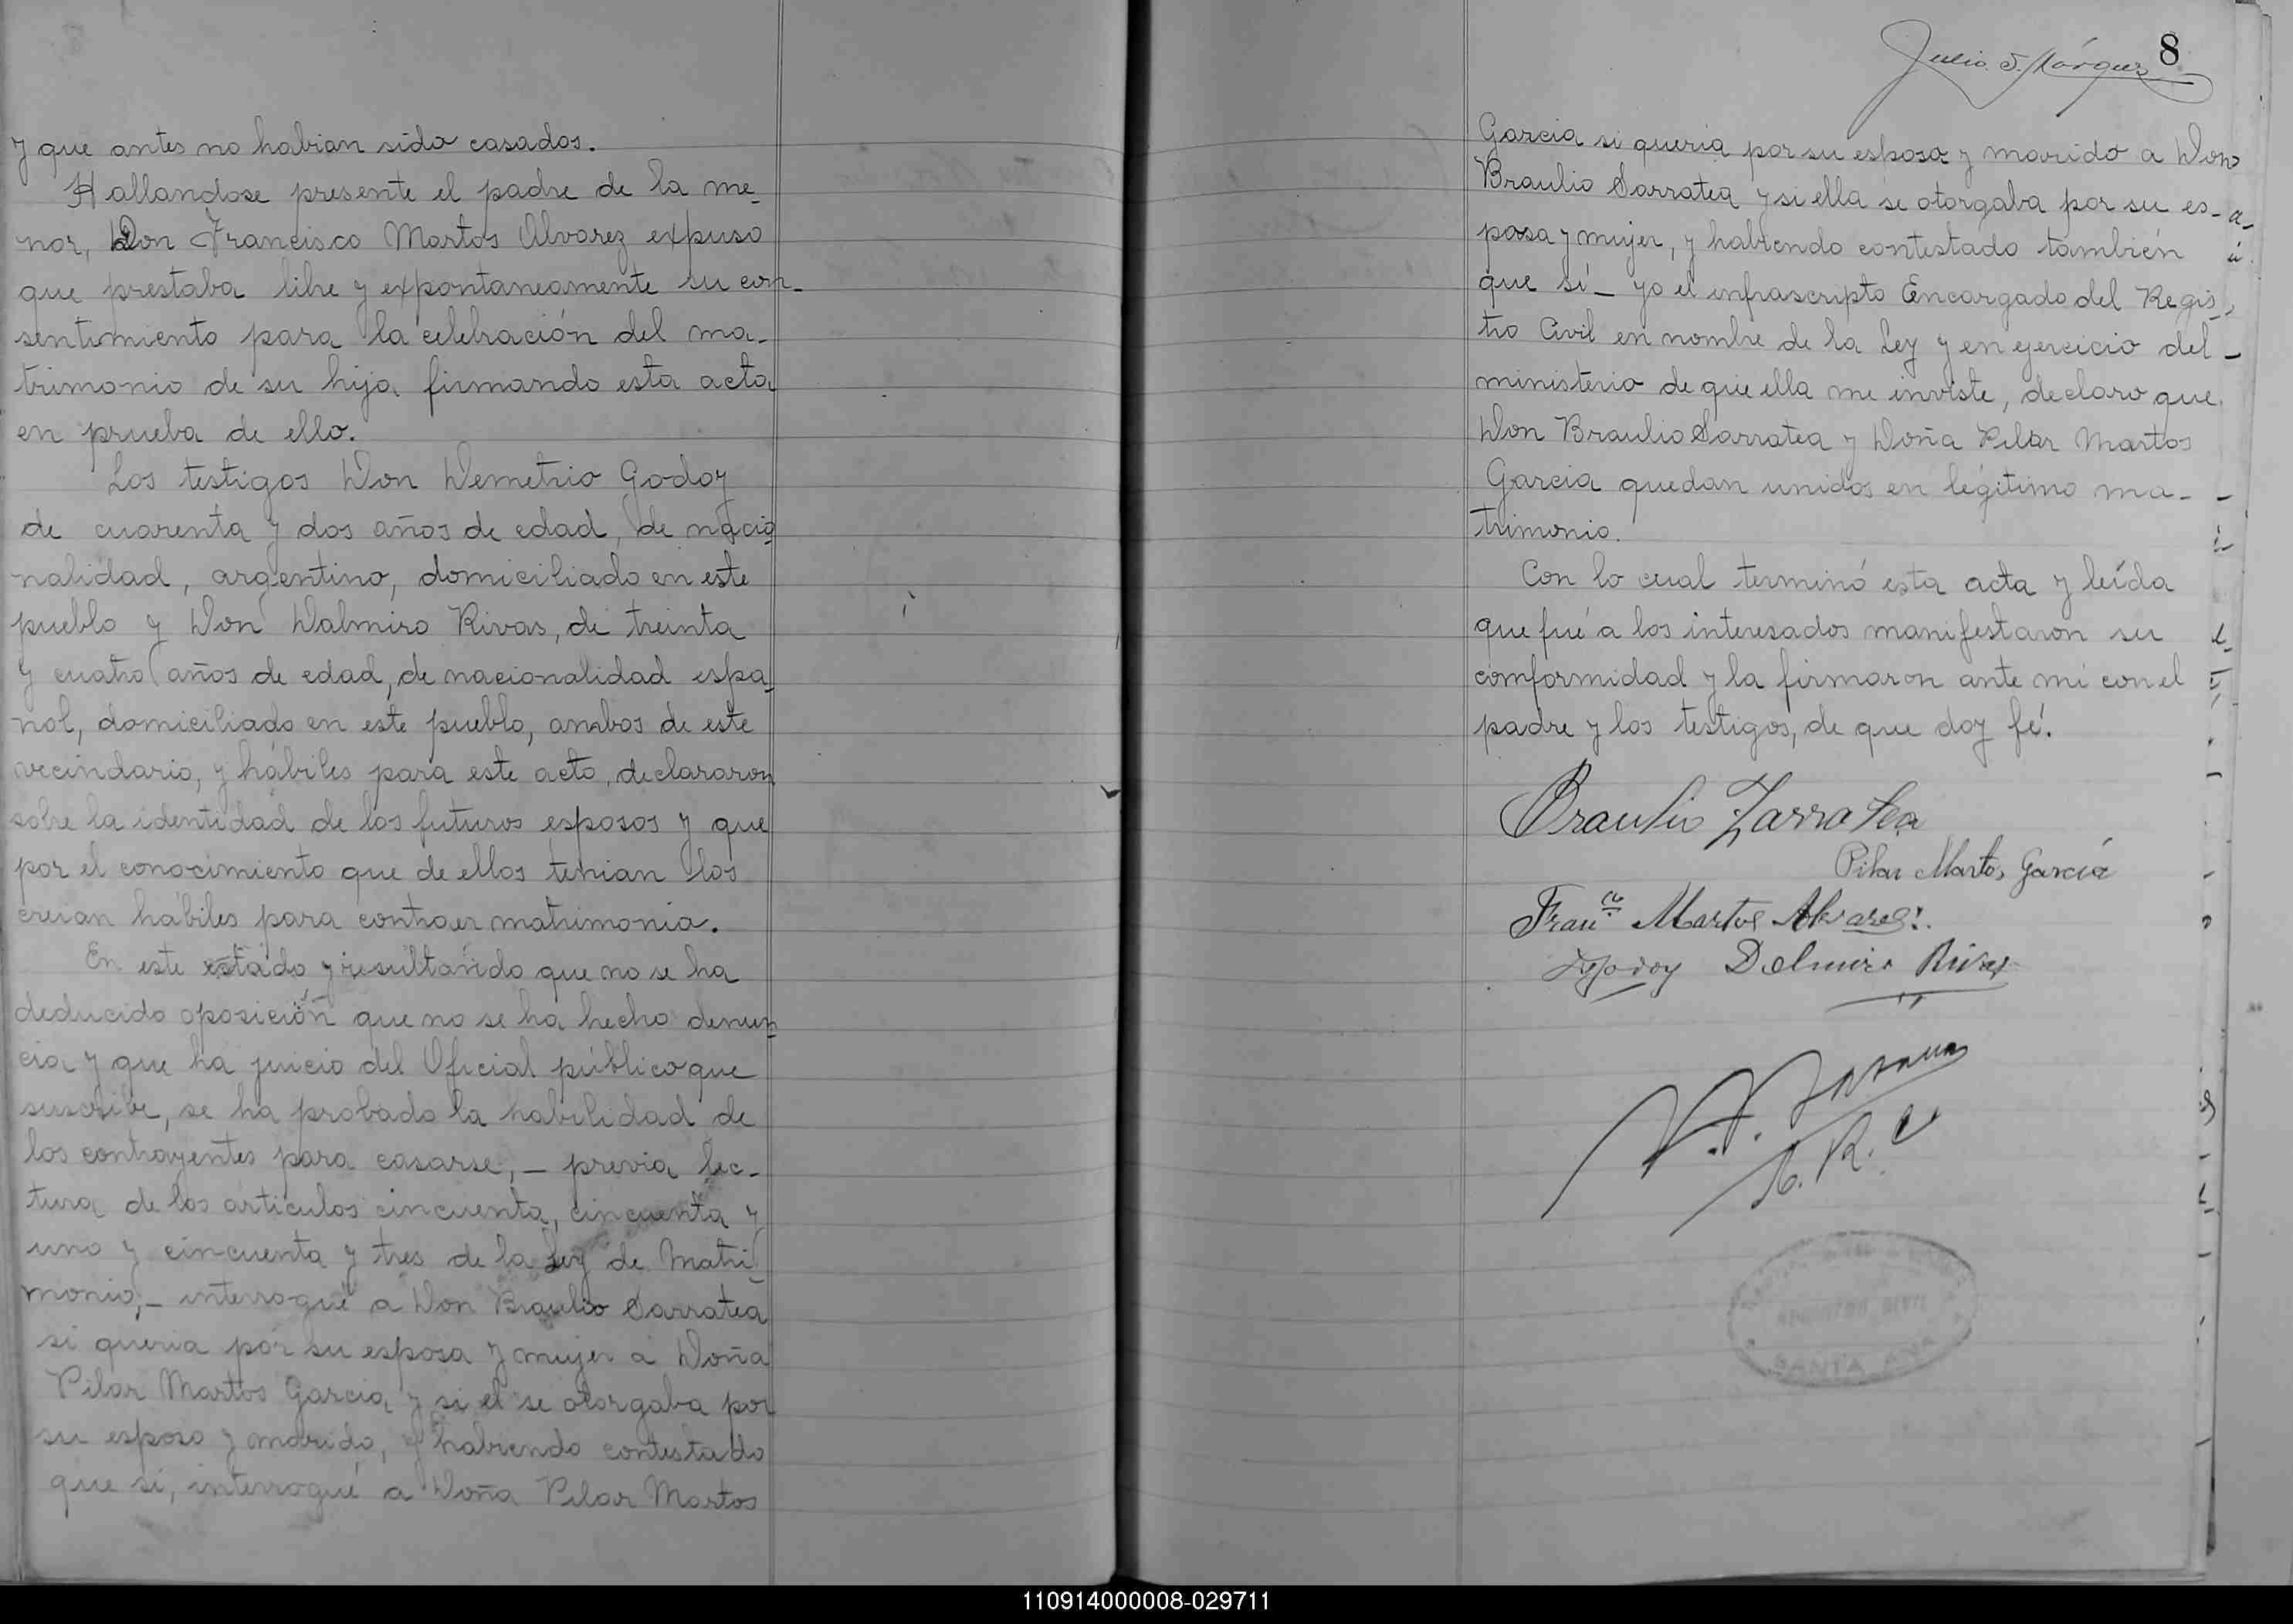 y que antes no habian sido casados.
Hallandose presente el padre de la me-
nor, Don Francisco Martos Alvarez expuso
que prestaba libre y expontaneamente su con-
sentimiento para la celebración del ma-
trimonio de su hija firmando esta acta
en prueba de ello.
Los testigos Don Demetrio Godoy
de cuarenta y dos años de edad, de nacio
nalidad, argentino, domiciliado en este
pueblo y Don Dalmiro Rivas, de treinta
y cuatro años de edad, de nacionalidad espa-
ñol, domiciliado en este pueblo, ambos de este
vecindario, y hábiles para este acto, declararon
sobre la identidad de los futuros esposos y que
por el conocimiento que de ellos tenian los
creian hábiles para contraer matrimonio.
En este estado y resultando que no se ha
deducido oposición que no se ha hecho denun-
cia y que ha juicio del Oficial público que
suscribe, se ha probado la habilidad de
los contrayentes para casarse, - previa lec-
tura de los articulos cincuenta, cincuenta y
uno y cincuenta y tres de la Ley de Matri-
monio, - interrogué a Don Braulio Sarratea
si queria por su esposa y mujer a Doña
Pilar Martos Garcia y si el se otorgaba por
su esposo y marido, y habiendo contestado
que si, interrogué a Doña Pilar Martos
8
Garcia si queria por su esposo y marido a Don
Braulio Sarratea y si ella se otorgaba por su es-
posa y mujer, y habiendo contestado también
que sí - yo el infrascripto Encargado del Regis-
tro Civil en nombre de la Ley y en ejercicio del
ministerio de que ella me inviste, declaro que
Don Braulio Sarratea y Doña Pilar Martos
Garcia quedan unidos en legítimo ma-
trimonio.
Con lo cual terminó esta acta y leída
que fué a los interesados manifestaron su
comformidad y la firmaron ante mi con el
padre y los testigos, de que doy fé.
Braulio Zarratea
Pilar Martos García
Franco Martos Alvarez
Godoy Delmiro Rivas
SANTA ANA
110914000008-029711